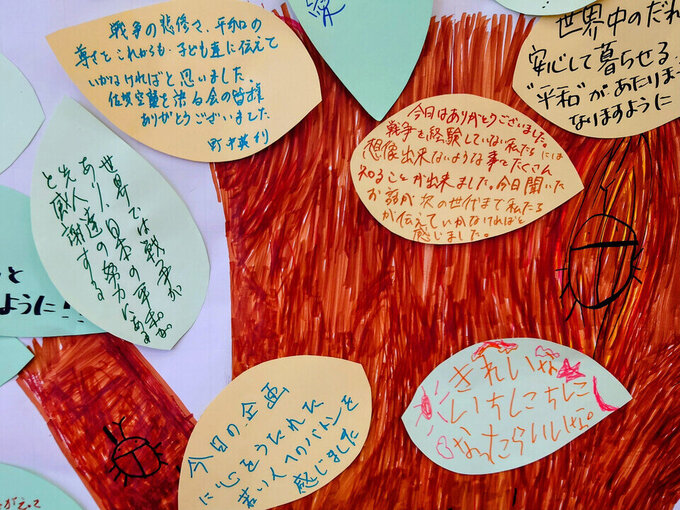 戦争の悲惨さ、平和の
尊さをこれからも、子ども達に伝えて
いかなければと思いました。
佐賀空襲を語る会の皆様
ありがとうございました
世界中のだれ
安心して暮らせる
"平和"があたりま
なりますように
今日はありがとうございました。
戦争を経験していない私たちには
想像出来ないような事をたくさん
知ることが出来ました。今日聞いた
お話が次の世代まで私たち
が伝えていかなければと
感じました。
世界では戦争が
あり、日本の平和が
先人達の努力にある
と感謝する
と
ように!
今日の企画
に心をうたれた
若い人へのバトンを
感じました
きれいな
いちにちに
なったらいいな。
がえって